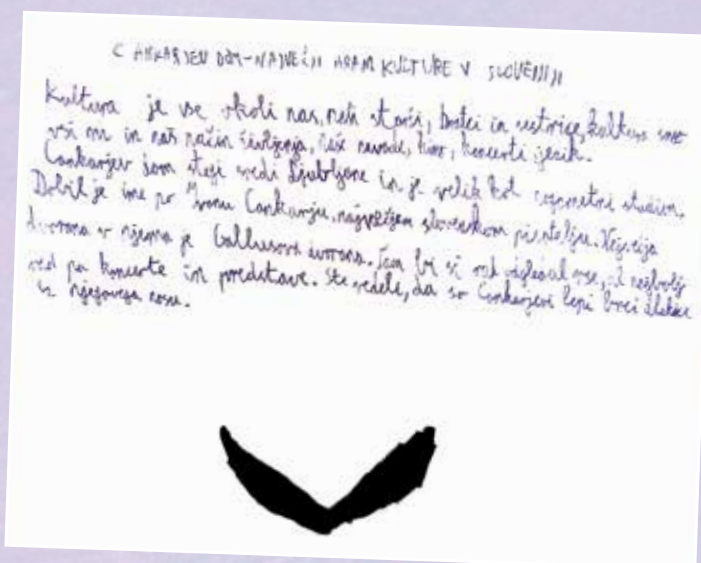 CANKARJEV DOM-NAJVEČJI HRAM KULTURE V SLOVENIJI
Kultura je vse okoli nas, naši starši, bratci in sestrice, kultura smo
vsi mi in naš način življenja, naše navade, koncerti jezik.
Cankarjev dom stoji sredi Ljubljane in je velik kot nogometni stadion.
Dobil je ime po Ivanu Cankarju, največjem slovenskem pisatelju. Največja
dvorana v njemu je Gallusova dvorana. Tam bi si rad ogledal vse, najbolj
rad pa koncerte in predstave. Ste vedele, da so Cankarjevi lepi brki dlake
iz njegovega nosu.